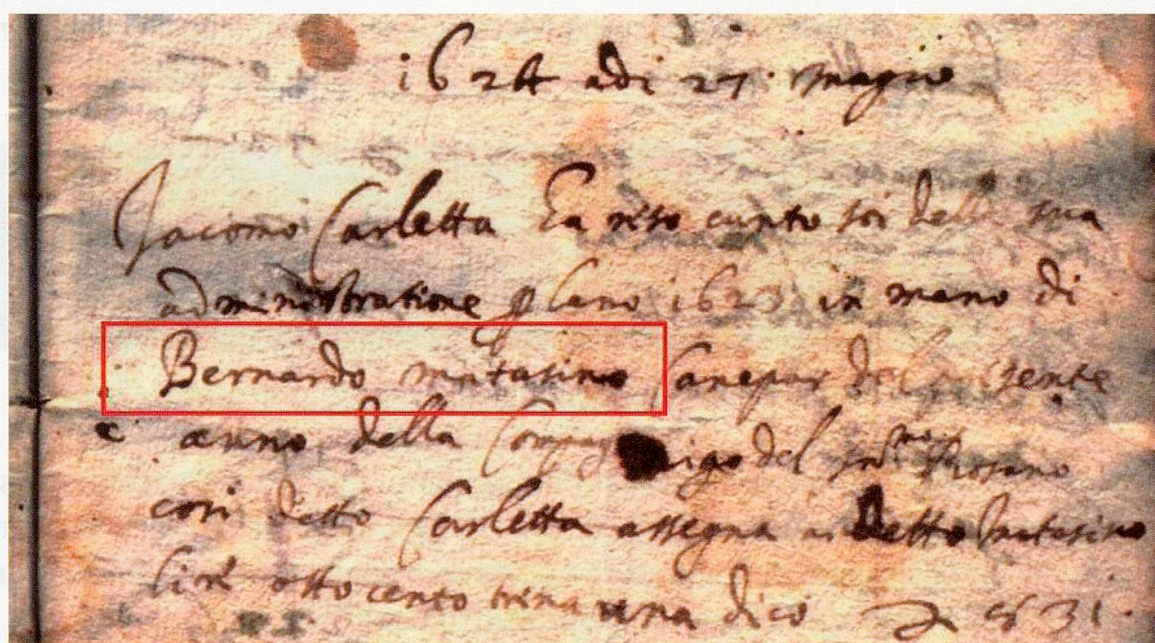 1624 adi 27 magio
Jacomo Carletta Ha reso cunto poi della sua
administratione p lano 1623 in mano di
Bernardo matasino Canepar del presente
anno della del Rosario
cosi detto Carletta assegna a detto matasino
lire otto cento trena una dico 831